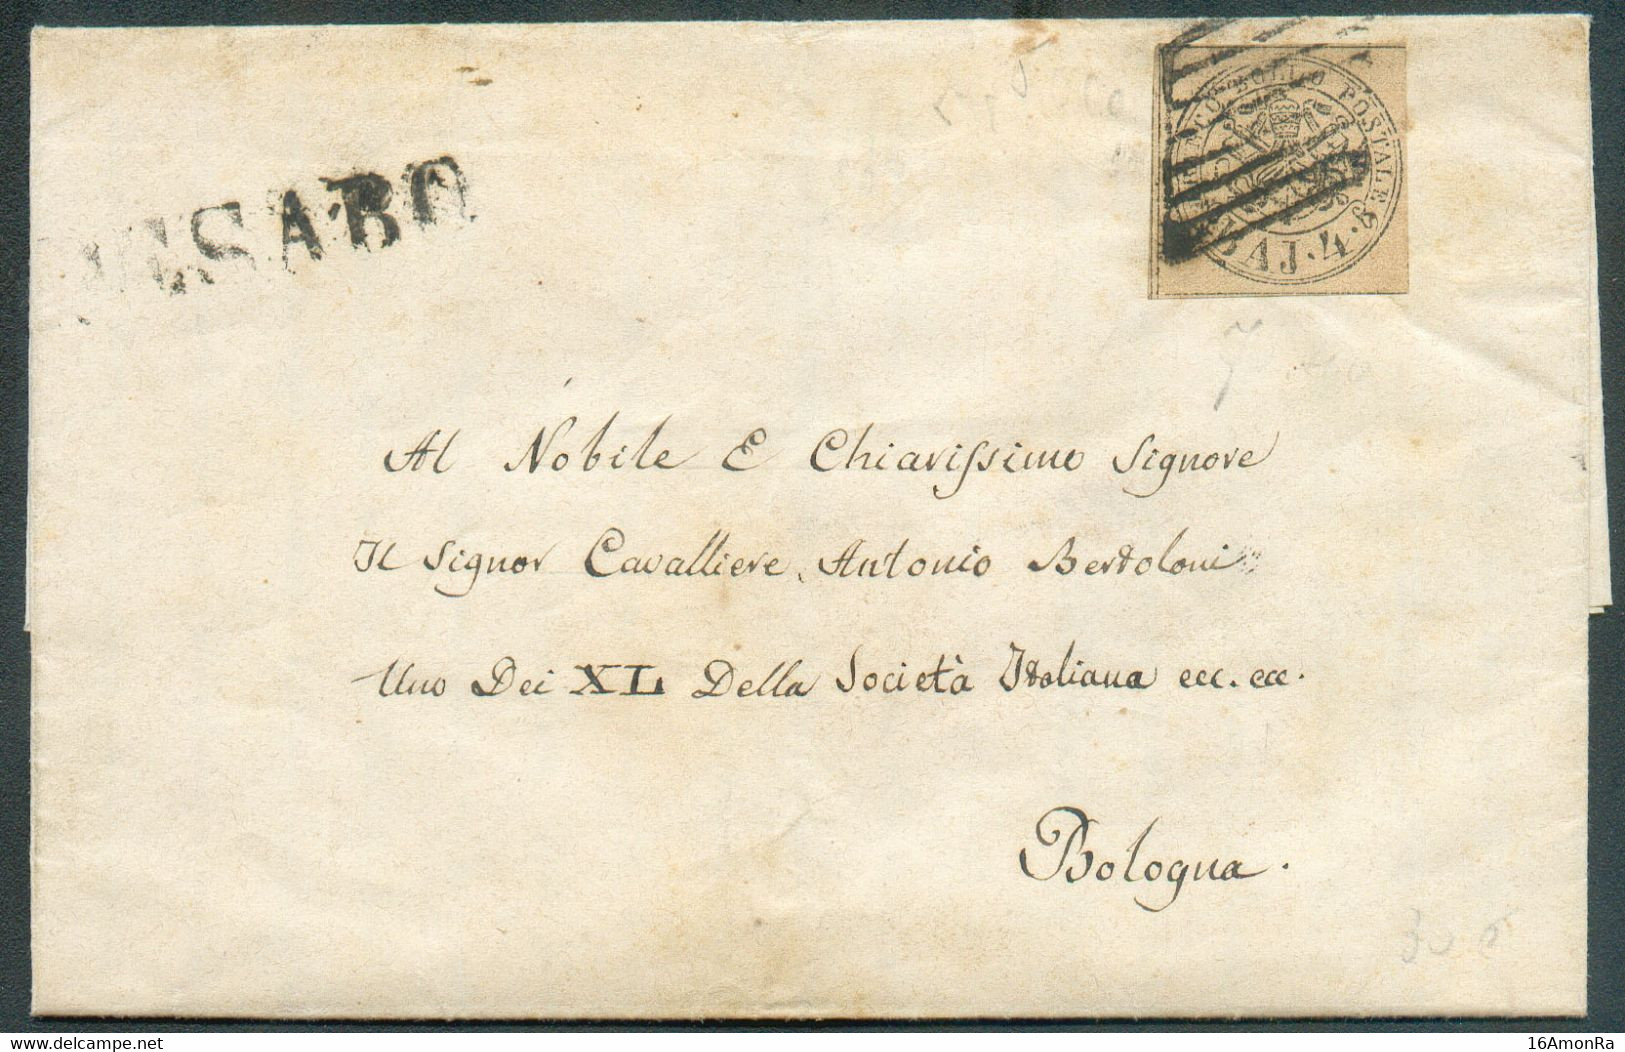 ESARO
BOLLO POSTALE
BAJ. 4.
Al Nobile E Chiariſsimo Signore
Il Signor Cavalliere Antonio Bertoloni
Uno Dei XL Della Società Italiana ecc. ecc.
Bologna.
www.delcampe.net
16AmonRa